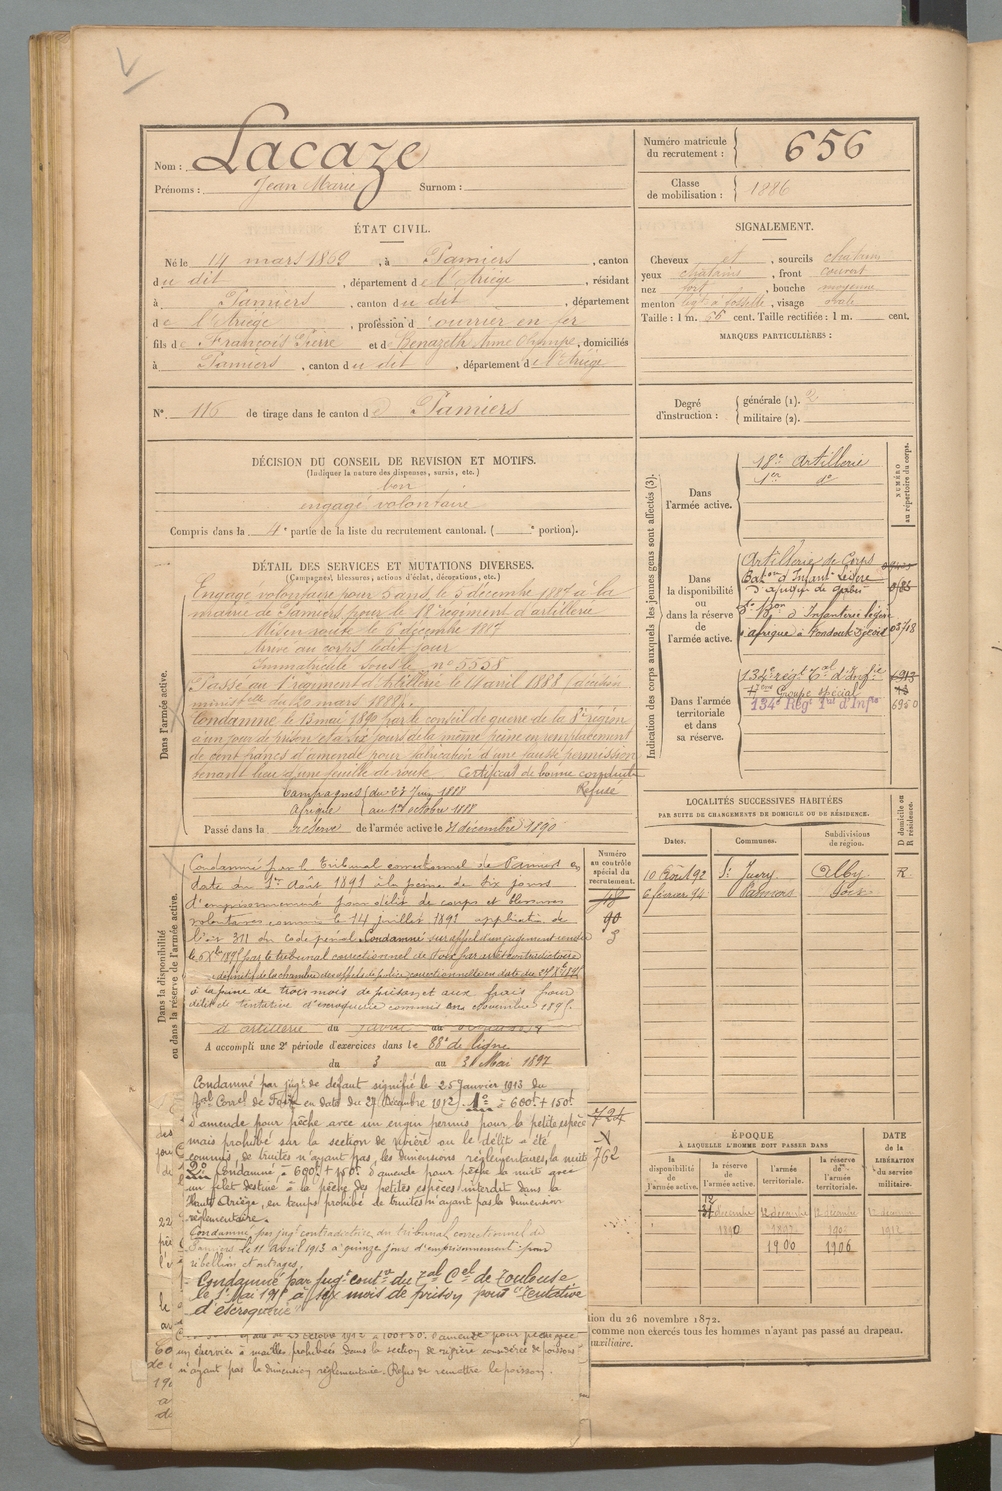 Nom : Lacaze
Prénoms : Jean Marie Surnom :
Numéro matricule du recrutement : 656
Classe de mobilisation : 1886
ÉTAT CIVIL.
Né le 14 mars 1869, à Pamiers, canton
du dit, département de l'Ariège, résidant
à Pamiers, canton du dit, département
de l'Ariège, profession d'ouvrier en fer
fils de François Pierre et de Benazeth Anne Olympe, domiciliés
à Pamiers, canton du dit, département de l'Ariège
N° 116 de tirage dans le canton de Pamiers
SIGNALEMENT.
Cheveux et, sourcils châtains
yeux châtains, front couvert
nez fort, bouche moyenne
menton à fossette, visage ovale
Taille : 1 m. 66 cent. Taille rectifiée : 1 m. cent.
MARQUES PARTICULIÈRES :
Degré d'instruction : générale (1). 2
militaire (2).
DÉCISION DU CONSEIL DE REVISION ET MOTIFS.
(Indiquer la nature des dispenses, sursis, etc.)
bon
engagé volontaire
Compris dans la 4e partie de la liste du recrutement cantonal. ( e portion).
DÉTAIL DES SERVICES ET MUTATIONS DIVERSES.
(Campagnes, blessures, actions d'éclat, décorations, etc.)
Dans l'armée active.
Engagé volontaire pour 5 ans le 5 décembre 1887 à la
mairie de Pamiers pour le 18e régiment d'artillerie
Mis en route le 6 décembre 1887
Arrivé au corps ledit jour
Immatriculé sous le n° 5558
Passé au 1er régiment d'Artillerie le 14 avril 1888 (décision
ministlle du 20 mars 1888).
Condamné le 13 mai 1890 par le conseil de guerre de la 8e région
à un jour de prison et à six jours de la même peine en remplacement
de cent francs d'amende pour fabrication d'une fausse permission
tenant lieu d'une feuille de route. Certificat de bonne conduite
Refusé
Campagnes { du 23 Juin 1888
Afrique { au 1er octobre 1888
Passé dans la réserve de l'armée active le 31 décembre 1890
Indication des corps auxquels les jeunes gens sont affectés (3).
NUMÉRO au répertoire du corps.
Dans l'armée active.
18e Artillerie
1er do
Dans la disponibilité ou dans la réserve de l'armée active.
Artillerie de Corps
Baton d'Infanie Légère
d'afrique de Gabès
5e Bon d'Infanterie légère
d'afrique à
03718
Dans l'armée territoriale et dans sa réserve.
134e régt Tal d'Infie
Groupe spécial
134e Régt Tal d'Infie
6950
LOCALITÉS SUCCESSIVES HABITÉES
PAR SUITE DE CHANGEMENTS DE DOMICILE OU DE RÉSIDENCE.
Dates. Communes. Subdivisions de région. D domicile ou R résidence.
10 Août 92 St Juéry Alby R
6 février 94 Foix
Dans la disponibilité ou dans la réserve de l'armée active.
Numéro au contrôle spécial du recrutement.
90
3
Condamné par le Tribunal correctionnel de Pamiers en
date du 1er Août 1891 à la peine de six jours
d'emprisonnement pour délit de coups et blessures
volontaires commis le 14 juillet 1891 application de
l'art 311 du code pénal. Condamné sur appel d'un jugement rendu
le 6 Xbre 1895 par le tribunal correctionnel de Foix par arrêt contradictoire
définitif de la chambre des appels de police correctionnelle en date du 27 Xbre 1895
à la peine de trois mois de prison et aux frais pour
délit de tentative d'escroquerie commis en Novembre 1895.
d'artillerie du au
A accompli une 2e période d'exercices dans le 88e de ligne
du 3 au 30 Mai 1897
Condamné par jugt de défaut signifié le 25 Janvier 1913 du
Tal Correl de Foix en date du 27 Décembre 1912) 1° à 600f + 150f
d'amende pour pêche avec un engin permis pour la petite espèce
mais prohibé sur la section de rivière ou le délit a été
commis, de truites n'ayant pas les dimensions réglementaires, la nuit
2° Condamné à 600f + 150f d'amende pour pêche la nuit avec
un filet destiné à la pêche des petites espèces interdit dans la
Haute Ariège, en temps prohibé de truites n'ayant pas la dimension
réglementaire.
Condamné par jugt contradictoire du tribunal correctionnel de
Pamiers le 11 avril 1913 à quinze jours d'emprisonnement pour
rébellion et outrages.
Condamné par Jugt contre du Tal Cel de Toulouse
le 1er Mai 191 à six mois de prison pour "Tentative
d'escroquerie"
en date du 23 octobre 1912 à 100 + 50f d'amende pour pêche avec
un épervier à mailles prohibées dans la section de rivière de poissons
n'ayant pas la dimension réglementaire. Refus de remettre le poisson.
724
762
ÉPOQUE
À LAQUELLE L'HOMME DOIT PASSER DANS
DATE DE LA LIBÉRATION du service militaire.
la disponibilité de l'armée active. la réserve de l'armée active. l'armée territoriale. la réserve de l'armée territoriale.
12
31 décembre décembre décembre décembre
1890 1897 1912
1900 1906
tion du 26 novembre 1872.
comme non exercés tous les hommes n'ayant pas passé au drapeau.
uxiliaire.